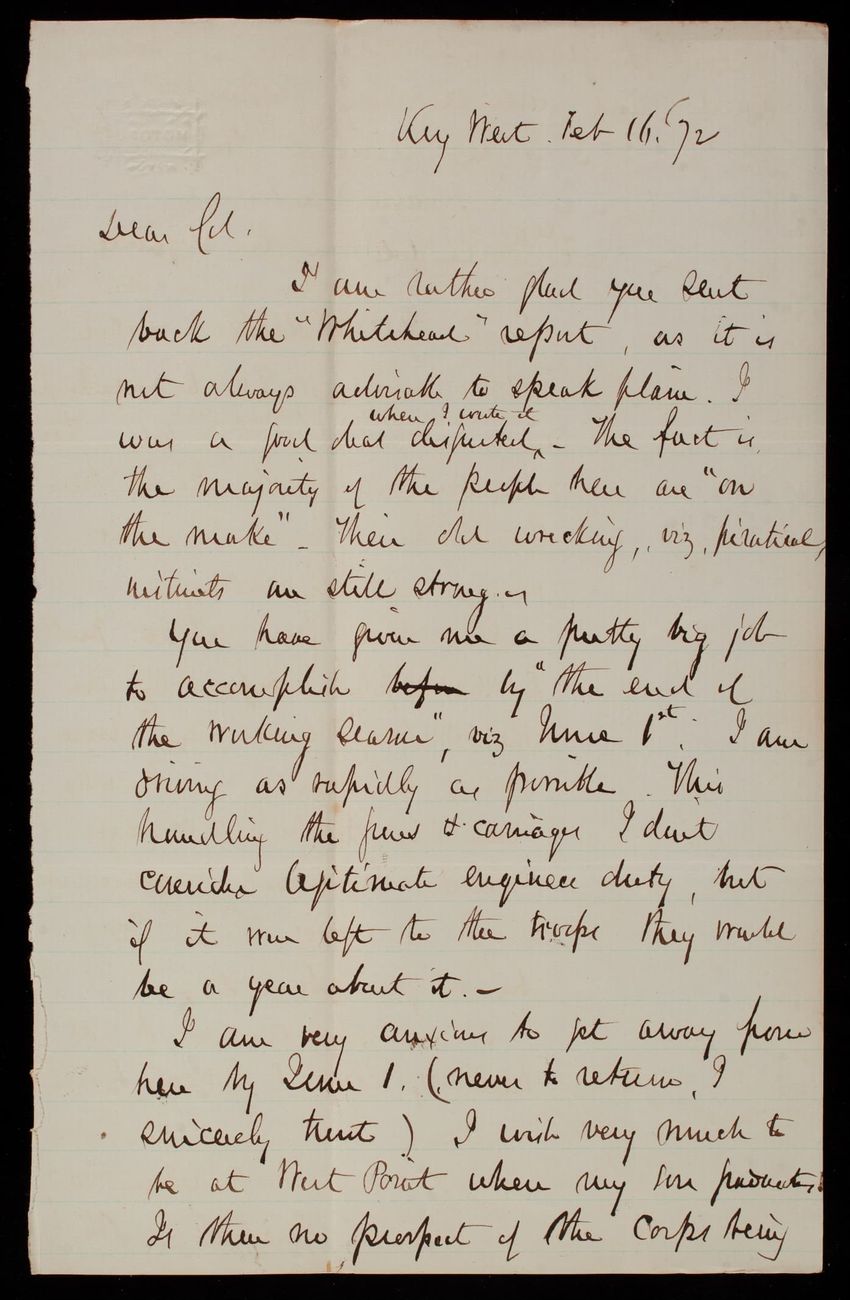 Key West. Feb 16. /72
Dear Col.
I am rather glad you sent
back the "Whitehead" report, as it is
not always advisable to speak plain. I
was a good deal disgusted when I wrote it - The fact is
the majority of the people here are "on
the make" - Their old wrecking, viz, piratical,
instincts are still strong. -
You have given me a pretty big job
to accomplish before by "the end of
the working season", viz June 1st. I am
driving as rapidly as possible. This
handling the guns & carriages I don't
consider legitimate engineer duty, but
if it was left to the troops they would
be a year about it. -
I am very anxious to get away from
here by June 1. (never to return, I
sincerely trust) I wish very much to
be at West Point when my son graduates.
Is there no prospect of the Corps being